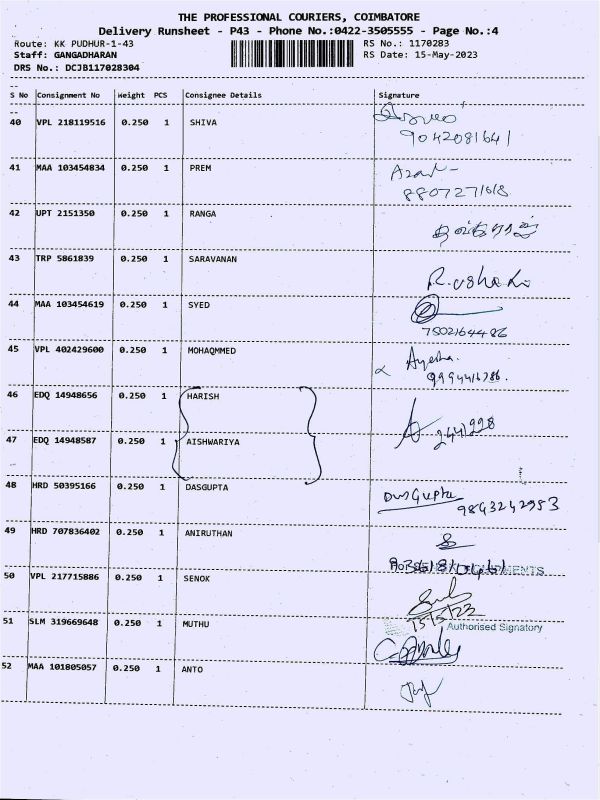 THE PROFESSIONAL COURIERS, COIMBATORE
Delivery Runsheet - P43 - Phone No.:0422-3505555 - Page No.:4
Route: KK PUDHUR-1-43 RS No.: 1170283
Staff: GANGADHARAN RS Date: 15-May-2023
DRS No.: DCJB117028304
S No Consignment No Weight PCS Consignee Details Signature
40 VPL 218119516 0.250 1 SHIVA
9042081641
41 MAA 103454834 0.250 1 PREM
8807271618
42 UPT 2151350 0.250 1 RANGA
43 TRP 5861839 0.250 1 SARAVANAN
44 MAA 103454619 0.250 1 SYED
7502164486
45 VPL 402429600 0.250 1 MOHAQMMED Ayesha.
9994416786.
46 EDQ 14948656 0.250 1 HARISH
2441228
47 EDQ 14948587 0.250 1 AISHWARIYA
48 HRD 50395166 0.250 1 DASGUPTA DasGupta
9843242953
49 HRD 707836402 0.250 1 ANIRUTHAN
50 VPL 217715886 0.250 1 SENOK
15/5/23
51 SLM 319669648 0.250 1 MUTHU Authorised Signatory
52 MAA 101805057 0.250 1 ANTO